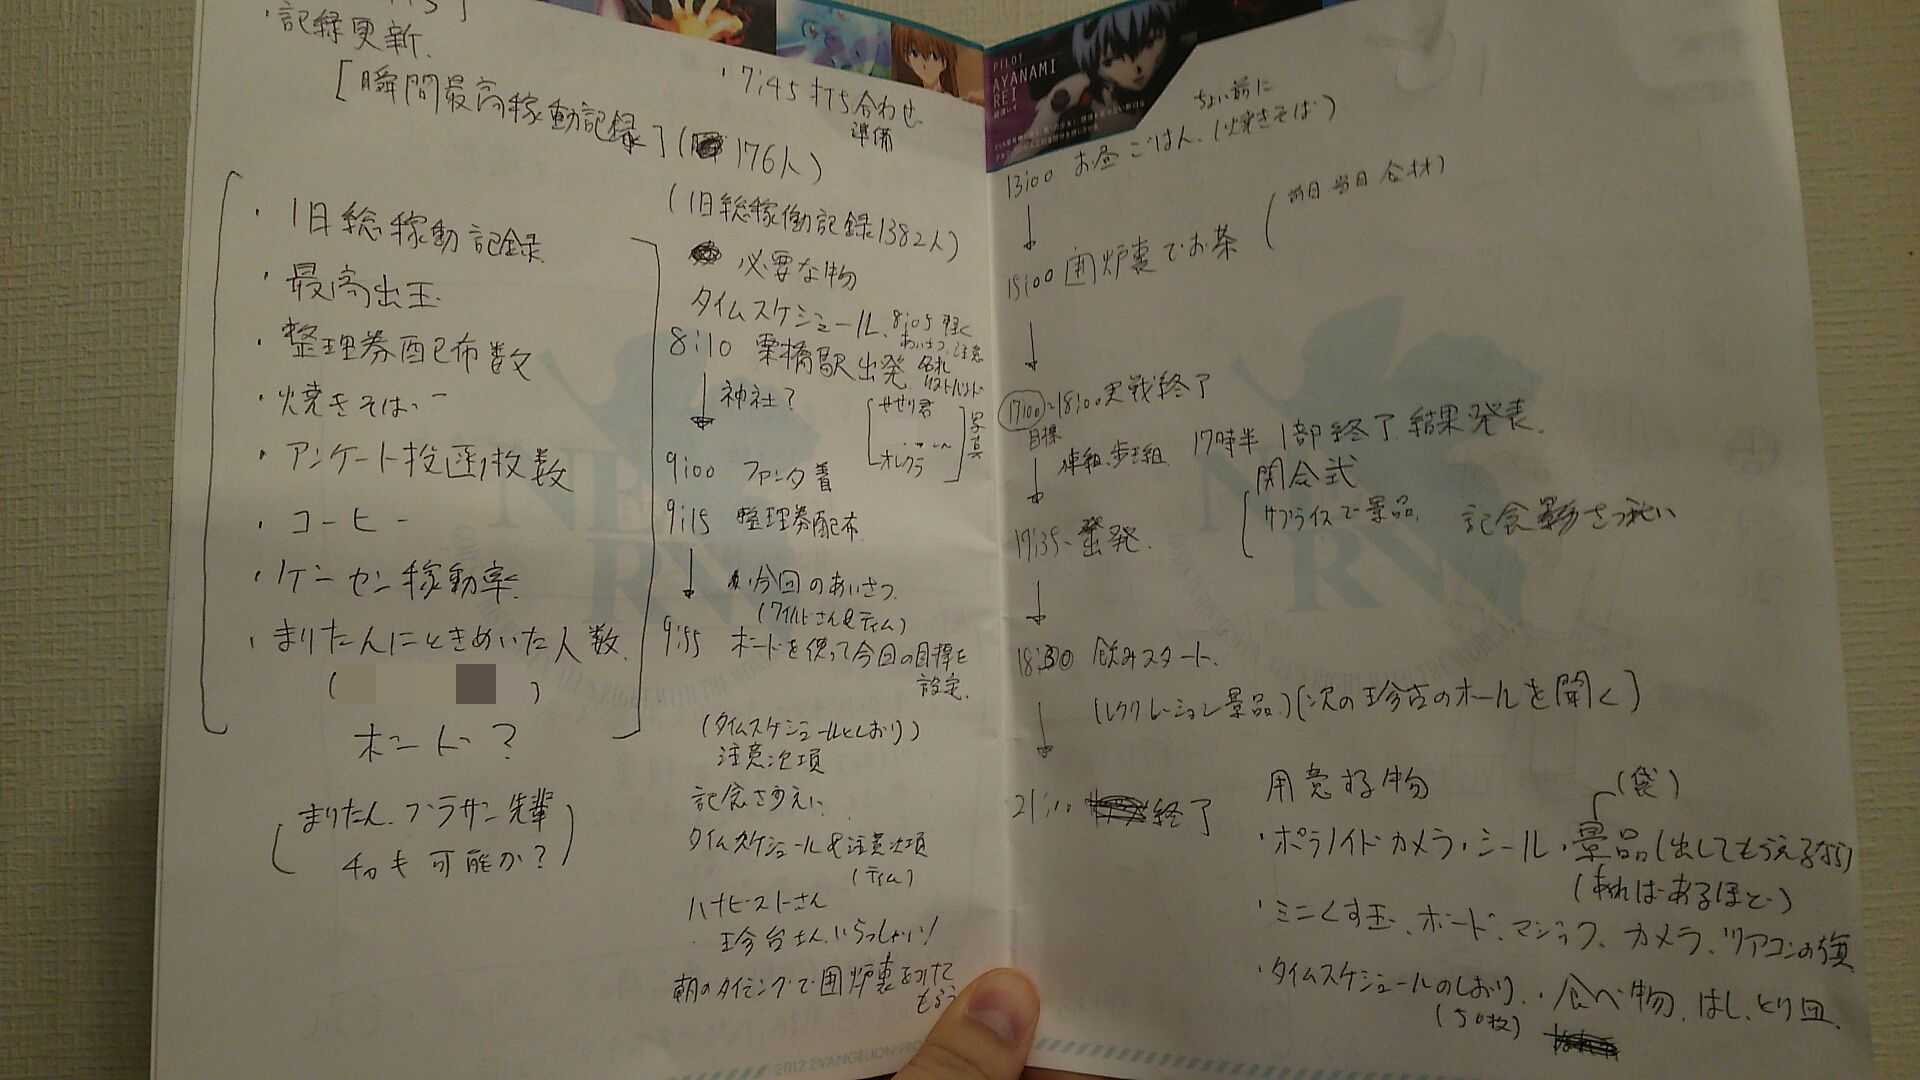 ・記録更新.
[瞬間最高稼動記録](176人)
・1日総稼動記録
・最高出玉
・整理券配布数
・焼きそば
・アンケート投函枚数
・コーヒー
・ゲーセン稼動率
・まりたんにときめいた人数.
ボード?
(まりたん.ブラサン先輩
も可能か?)
・7:45 打ち合わせ
準備
(1日総稼働記録1382人)
必要な物
タイムスケジュール. 8:05 軽く
あいさつ、注意
8:10 栗橋駅出発 名札
リストバンド
↓ 神社?
せせり君
オレクラ
写真
9:00 ファンタ着
9:15 整理券配布
↓ 今回のあいさつ
(ワイルドさん&ティム)
9:55 ボードを使って今回の目標を
設定.
(タイムスケジュールとしおり)
注意次項
タイムスケジュール&注意次項
(ティム)
ハナビストさん
珍古さん、いらっしゃい!
朝のタイミングで囲炉裏をつけて
もらう
PILOT
AYANAMI
REI
ちょい前に
13:00 お昼ごはん.(焼きそば)
↓
(前日 当日 合材)
15:00 囲炉裏でお茶
↓
17:00~18:00実戦終了
目標
車組、歩き組. 17時半 1部終了.結果発表.
↓
閉会式
サプライズで景品.
17:35~出発.
↓
18:30 飲みスタート.
(レクリレーション景品.)(次の珍古のホールを聞く)
↓
21:00 終了
用意する物
(袋)
・ポラノイドカメラ・シール・景品(出してもらえるなら)
(あればあるほど)
・ミニくす玉、ボード、マジック、カメラ、ツアコンの旗
・タイムスケジュールのしおり.・食べ物.はし、とり皿.
(50枚)
NERV
2012 EVANGELION